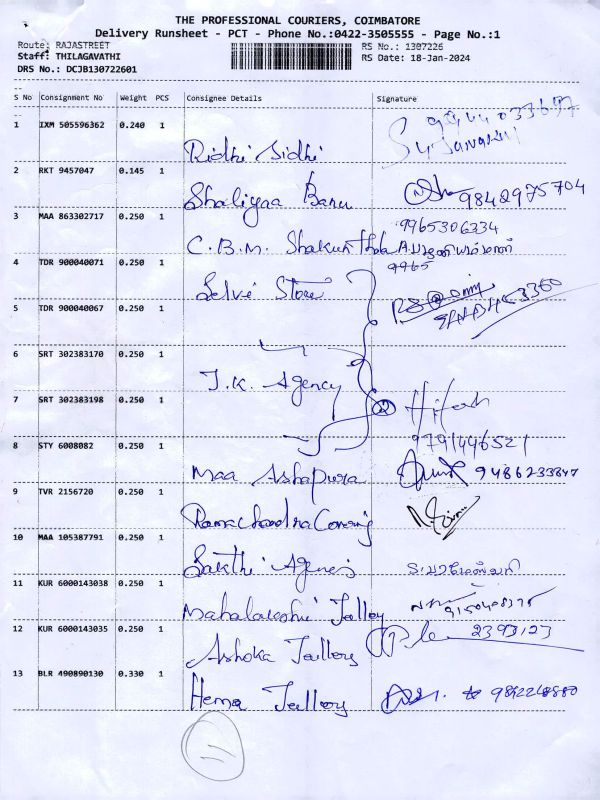 THE PROFESSIONAL COURIERS, COIMBATORE
Delivery Runsheet - PCT - Phone No.:0422-3505555 - Page No.:1
Route: RAJASTREET RS No.: 1307226
Staff: THILAGAVATHI RS Date: 18-Jan-2024
DRS No.: DCJB130722601
S No Consignment No Weight PCS Consignee Details Signature
1 IXM 505596362 0.240 1
Ridhi Sidhi
2 RKT 9457047 0.145 1
Shaliyaa Banu 9842975704
3 MAA 863302717 0.250 1 9965306334
C.B.M. Shakunthala
4 TDR 900040071 0.250 1 9965
Selvi Store
5 TDR 900040067 0.250 1
6 SRT 302383170 0.250 1
J.K. Agency
7 SRT 302383198 0.250 1 ② Hitesh
9791446521
8 STY 6008082 0.250 1
Maa Ashapura 9486233847
9 TVR 2156720 0.250 1
Ramachandra
10 MAA 105387791 0.250 1
Sakthi
11 KUR 6000143038 0.250 1
Mahalakshmi Jallery
12 KUR 6000143035 0.250 1 2393123
Ashoka Jallery
13 BLR 490890130 0.330 1
Hema Jallery